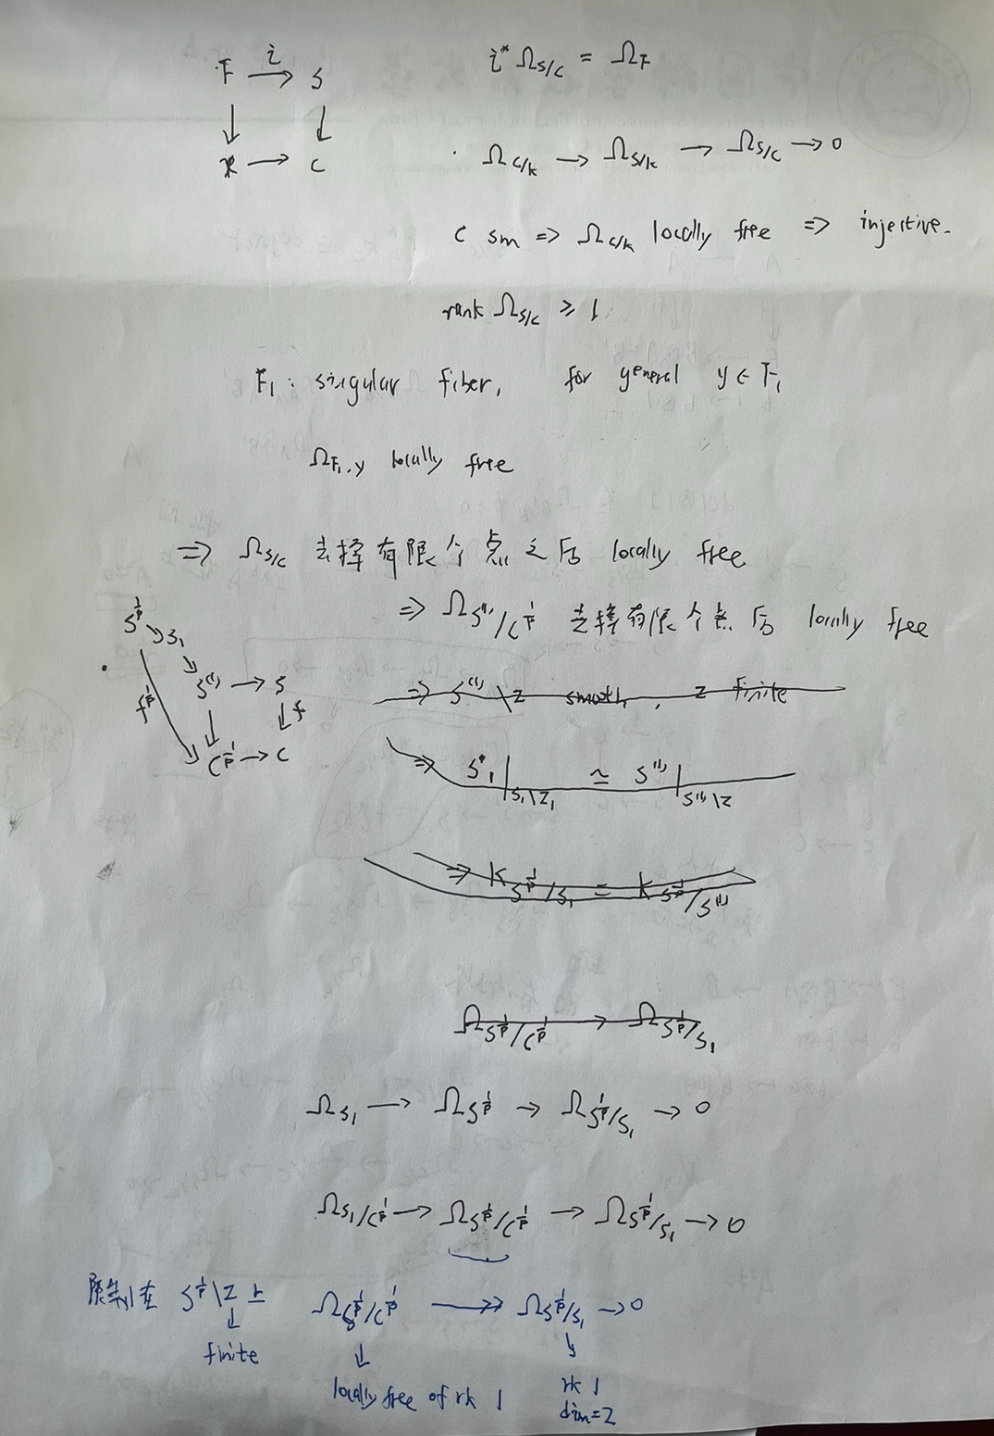 F —i→ S
i* Ω_{S/C} = Ω_F
↓ ↓
k → C
Ω_{C/k} → Ω_{S/k} → Ω_{S/C} → 0
C sm ⇒ Ω_{C/k} locally free ⇒ injective.
rank Ω_{S/C} ≥ 1
F₁ : singular fiber, for general y ∈ F₁
Ω_{F₁,y} locally free
⇒ Ω_{S/C} 去掉有限个点之后 locally free
⇒ Ω_{S^{(1)}/C^{1/p}} 去掉有限个点后 locally free
S^{1/p} ↘ S₁
↘ S^{(1)} → S
f^{1/p} ↓ ↓ f
C^{1/p} → C
⇒ S^{(1)} \ Z smooth, Z finite
⇒ S₁|_{S₁\Z₁} ≃ S^{(1)}|_{S^{(1)}\Z}
⇒ K_{S^{1/p}/S₁} = K_{S^{1/p}/S^{(1)}}
Ω_{S^{1/p}/C^{1/p}} → Ω_{S^{1/p}/S₁}
Ω_{S₁} → Ω_{S^{1/p}} → Ω_{S^{1/p}/S₁} → 0
Ω_{S₁/C^{1/p}} → Ω_{S^{1/p}/C^{1/p}} → Ω_{S^{1/p}/S₁} → 0
限制在 S^{1/p}\Z 上 Ω_{S^{1/p}/C^{1/p}} ↠ Ω_{S^{1/p}/S₁} → 0
↓ ↓ ↓
finite
locally free of rk 1
rk 1
dim=2